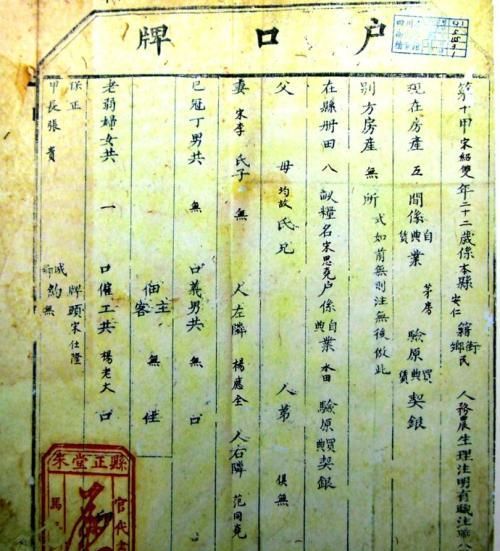 戶口牌
第十甲宋紹雙年二十二歲係本縣安仁籍街鄉民人務農生理注明有職注職
現在房產五間係自典賃業茅房驗原買典賃契銀
別方房產無所式如前無則注無後倣此
在縣册田八畝糧名宋思堯戶係自典業水田驗原買典契銀
父母均故氏兄人弟俱無
妻宋李氏子無人左隣楊應全人右隣范同堯
已冠丁男共無口義男共無口
佃客主無住
老弱婦女共一口傭工共楊老大口
保正牌頭宋仕隆
甲長張貴城鄉約無
縣正堂朱
官代書
馬
四川